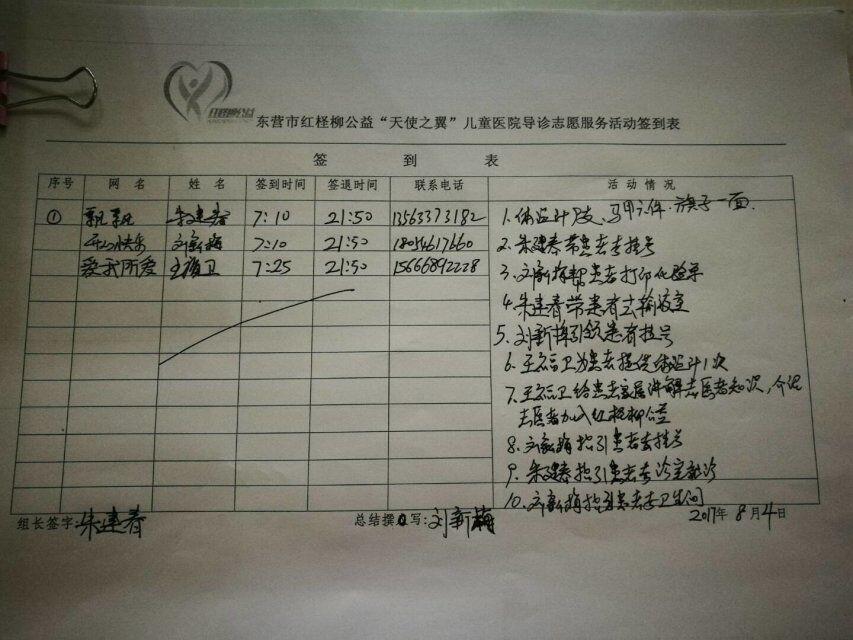 红柽柳公益
东营市红柽柳公益“天使之翼”儿童医院导诊志愿服务活动签到表
签 到 表
序号 网 名 姓 名 签到时间 签退时间 联系电话 活动情况
① 朱建春 7:10 21:50 13563373182
开心快乐 刘新梅 7:10 21:50 18054617660
爱我所爱 王福卫 7:25 21:50 15666892228
1. 体温计7支、马甲 件、旗子一面.
2. 朱建春带患者去挂号
3. 刘新梅帮患者打印化验单
4. 朱建春带患者去输液室
5. 刘新梅引领患者挂号
6. 王福卫为患者提供体温计1次
7. 王福卫给患者家属讲解志医者知识,介绍
志医者加入红柽柳公益
8. 刘新梅指引患者去挂号
9. 朱建春指引患者去诊室就诊
10. 刘新梅指引患者去卫生间
组长签字:朱建春 总结撰写:刘新梅 2017年8月4日